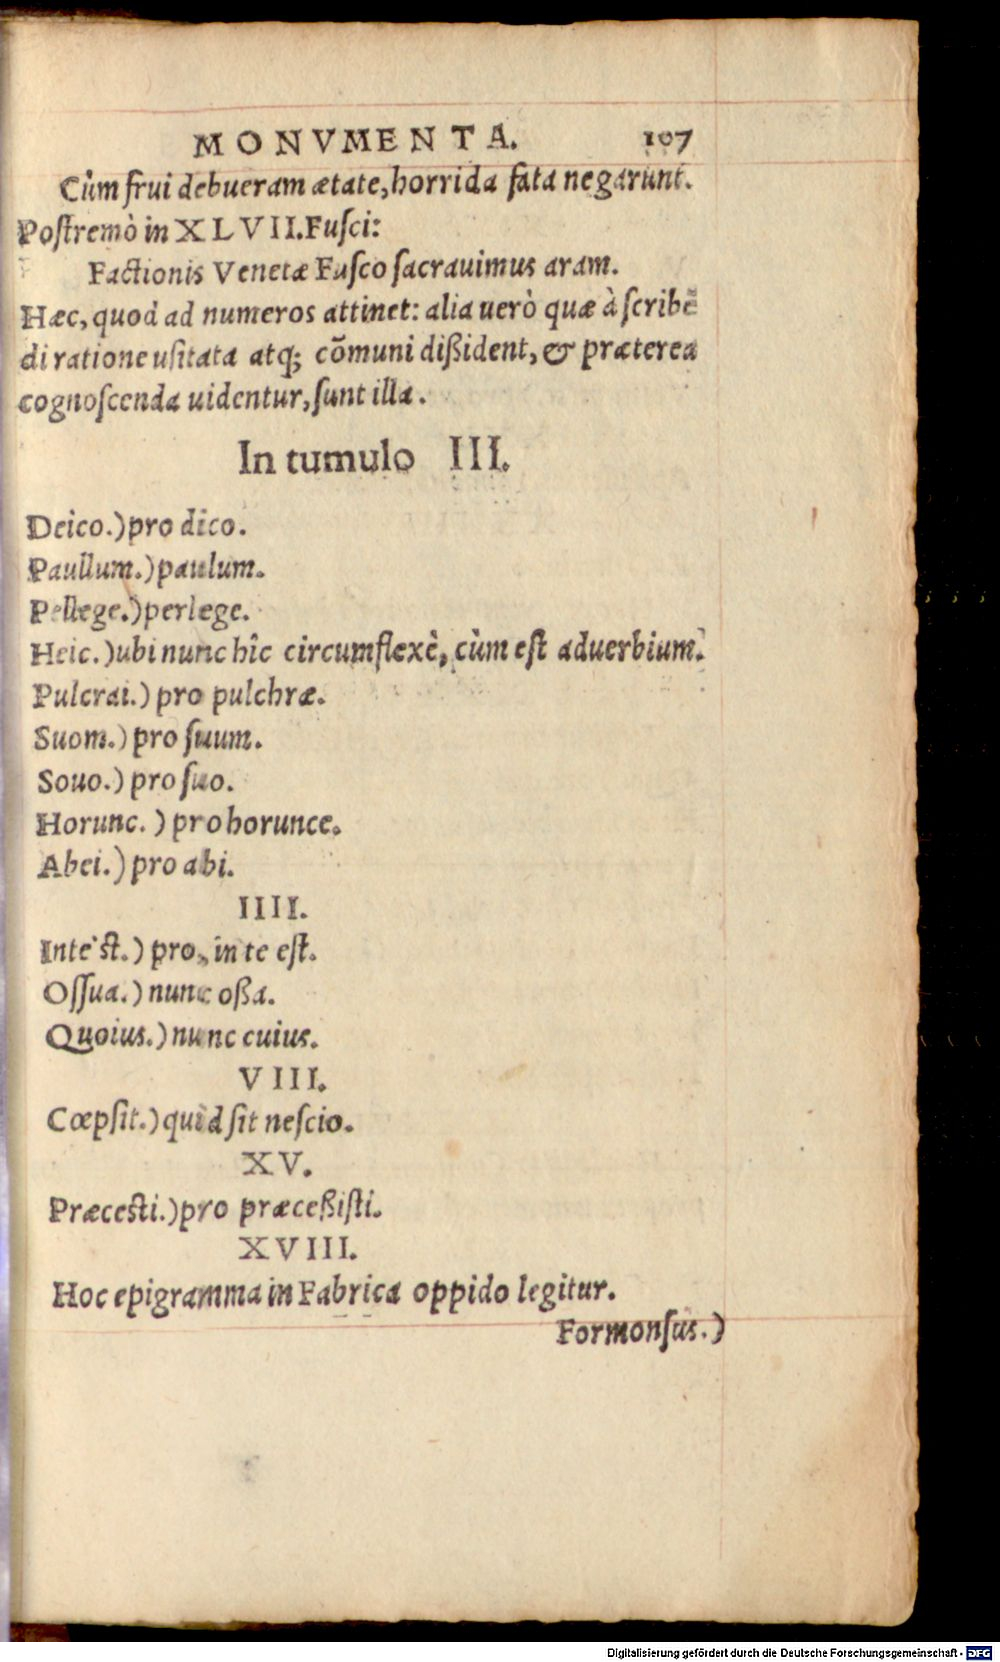 MONVMENTA. 107
Cùm frui debueram ætate, horrida fata negarunt.
Postremò in XLVII. Fusci:
Factionis Venetæ Fusco sacrauimus aram.
Hæc, quod ad numeros attinet: alia uerò quæ à scribē
di ratione usitata atq; cōmuni dißident, & præterea
cognoscenda uidentur, sunt illa.
In tumulo III.
Deico.) pro dico.
Paullum.) paulum.
Pellege.) perlege.
Heic.) ubi nunc hîc circumflexè, cùm est aduerbium.
Pulcrai.) pro pulchræ.
Suom.) pro suum.
Souo.) pro suo.
Horunc.) pro horunce.
Abei.) pro abi.
IIII.
Inte'st.) pro, in te est.
Ossua.) nunc oßa.
Quoius.) nunc cuius.
VIII.
Cœpsit.) quid sit nescio.
XV.
Præcesti.) pro præceßisti.
XVIII.
Hoc epigramma in Fabrica oppido legitur.
Formonsus.)
Digitalisierung gefördert durch die Deutsche Forschungsgemeinschaft - DFG